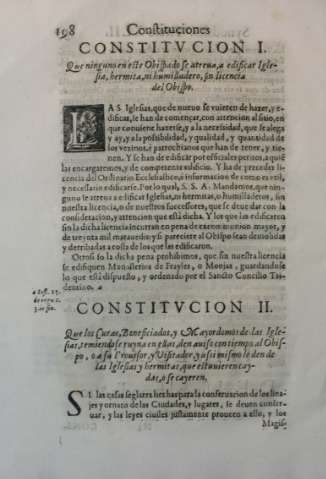 198 Constituciones
CONSTITVCION I.
Que ninguno en este Obispado se atreua, a edificar Igle-
sia, hermita, ni humilladero, sin licencia
del Obispo.
LAS Iglesias, que de nueuo se vuieren de hazer, y e-
dificar, le han de començar, con attencion al sitio, en
que conuiene hazerse, y a la necessidad, que se alega
y ay, y a la possibilidad, y qualidad, y quantidad de
los vezinos, è parrochianos que han de tener, y tie-
nen. Y se han de edificar por officiales peritos, a quiē
las encargaremos, y de competente edificio. Y ha de preceder li-
cencia del Ordinario Ecclesiastico, e informacion de como es vtil,
y necessario edificarse. Por lo qual, S. S. A. Mandamos, que nin-
guno se atreua a edificar Iglesias, ni hermitas, o humilladeros, sin
nuestra licencia, o de nuestros successores, que se deue dar con la
consideracion, y attencion que està dicha. Y los que las edificaren
sin la dicha licencia incurran en pena de excomunion mayor, y
de treynta mil marauedis: y si pareciere al Obispo sean demolidas
y derribadas a costa de los que las edificaron.
Otrosi so la dicha pena prohibimos, que sin nuestra licencia
se edifiquen Monasterios de Frayles, o Monjas, guardando se
lo que està dispuesto, y ordenado por el Sancto Concilio Tri-
dentino.
CONSTITVCION II.
Que los Curas, Beneficiados, y Mayordomos de las Igle-
sias, temiendo se ruyna en ellas, den auiso con tiempo al Obis-
po, o a su Prouisor, y Visitador, y assi mismo le den de
las Iglesias y hermitas, que estuuieren cay-
das, o se cayeren.
SI las casas seglares hechas para la conseruacion de los lina-
jes y ornato de las Ciudades, y lugares, se deuen conser-
uar, y las leyes ciuiles justamente proueen a ello, y los
Magis-